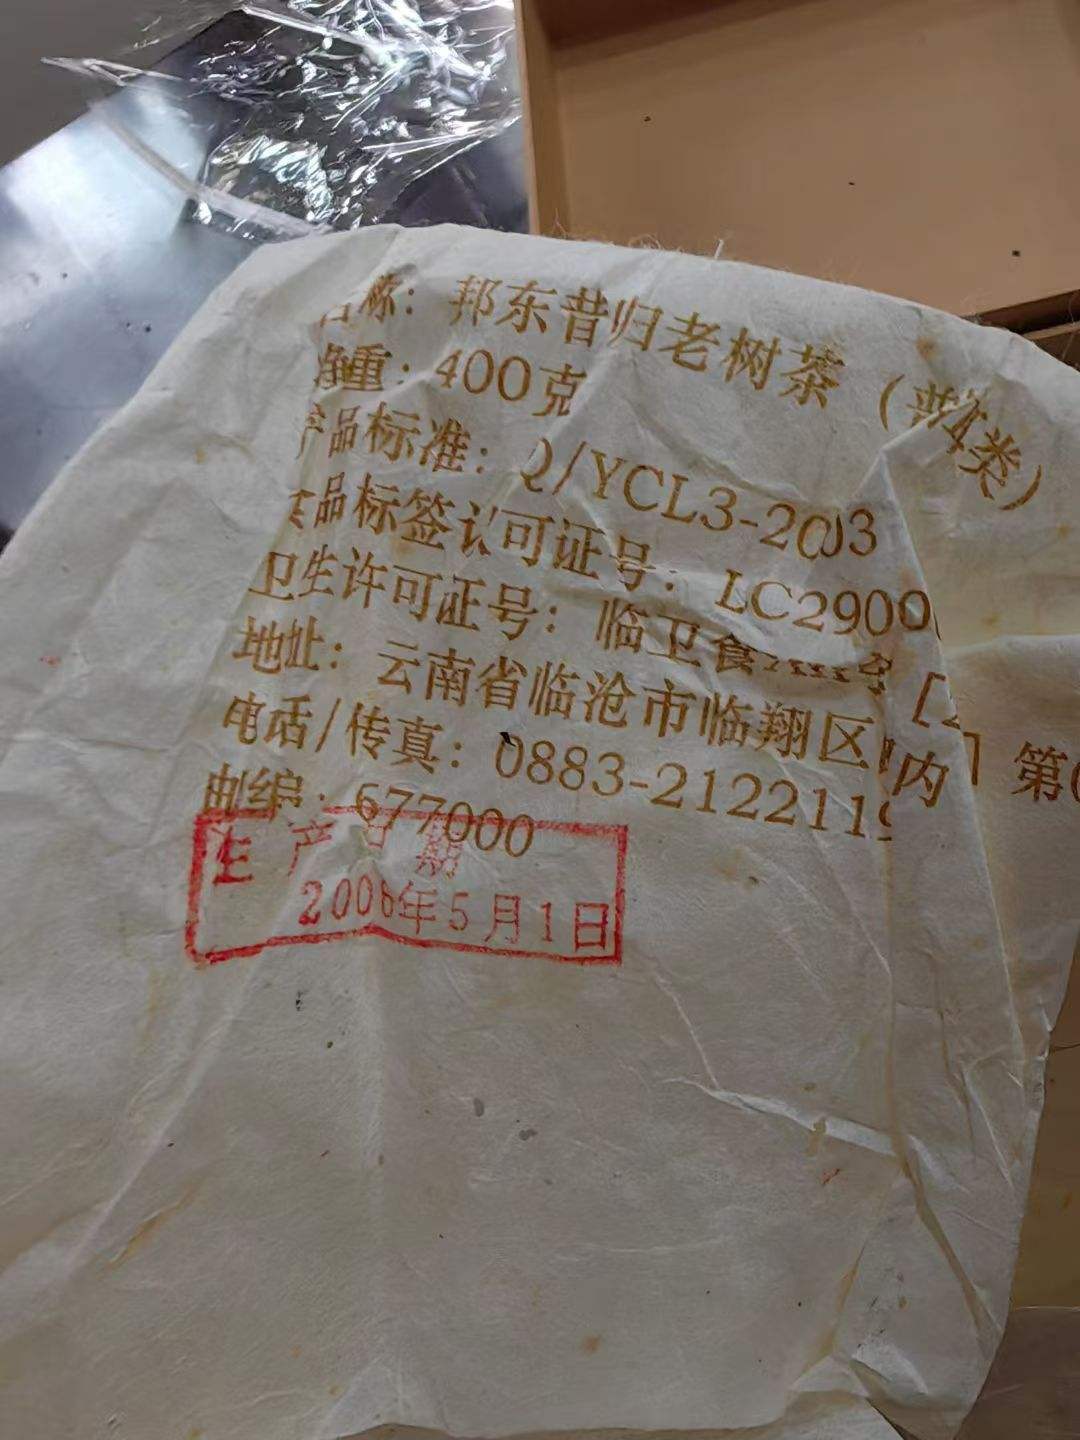 名称：邦东昔归老树茶（类）
净重：400克
产品标准：Q/YCL3-2003
食品标签认可证号：LC2900
卫生许可证号：临卫食 [2 第
地址：云南省临沧市临翔区 内
电话/传真：0883-2122119
邮编：677000
生产日期
2006年5月1日